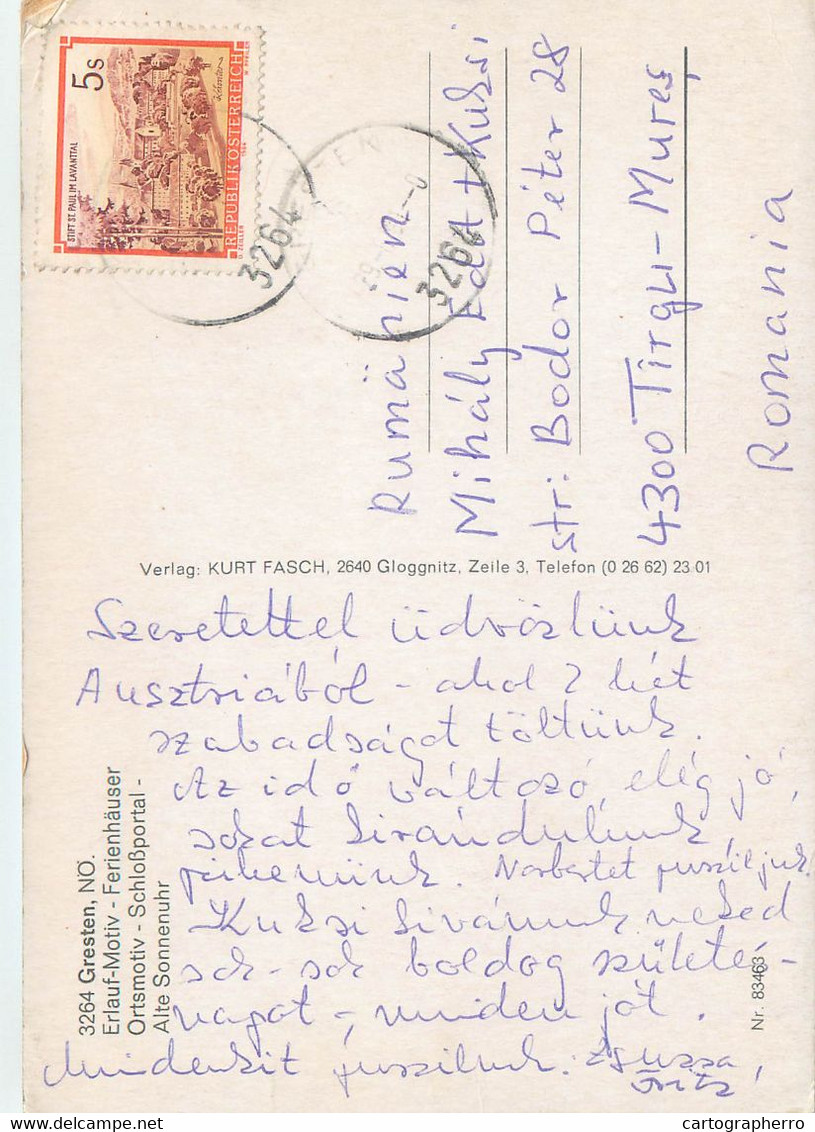 5s
STIFT ST. PAUL IM LAVANTTAL
Kärnten
REPUBLIK ÖSTERREICH
O. ZEILER 1984 W. PFEILER
3264
3264
Rumänien
Mihály Edit + Kuksi
str: Bodor Péter 28
4300 Tîrgu-Mureș
Romania
Verlag: KURT FASCH, 2640 Gloggnitz, Zeile 3, Telefon (0 26 62) 23 01
Szeretettel üdvözlünk
Ausztriából - ahol 2 hét
szabadságot töltünk.
Az idő változó, elég jó,
sokat kirándulunk,
pihenünk. Norbertet pusziljuk.
Kuksi kivánunk neked
sok-sok boldog születés-
napot -, minden jót.
Mindenkit puszilunk: Zsuzsa,
Fritz
3264 Gresten, NÖ.
Erlauf-Motiv - Ferienhäuser
Ortsmotiv - Schloßportal -
Alte Sonnenuhr
Nr. 83463
cartographerro